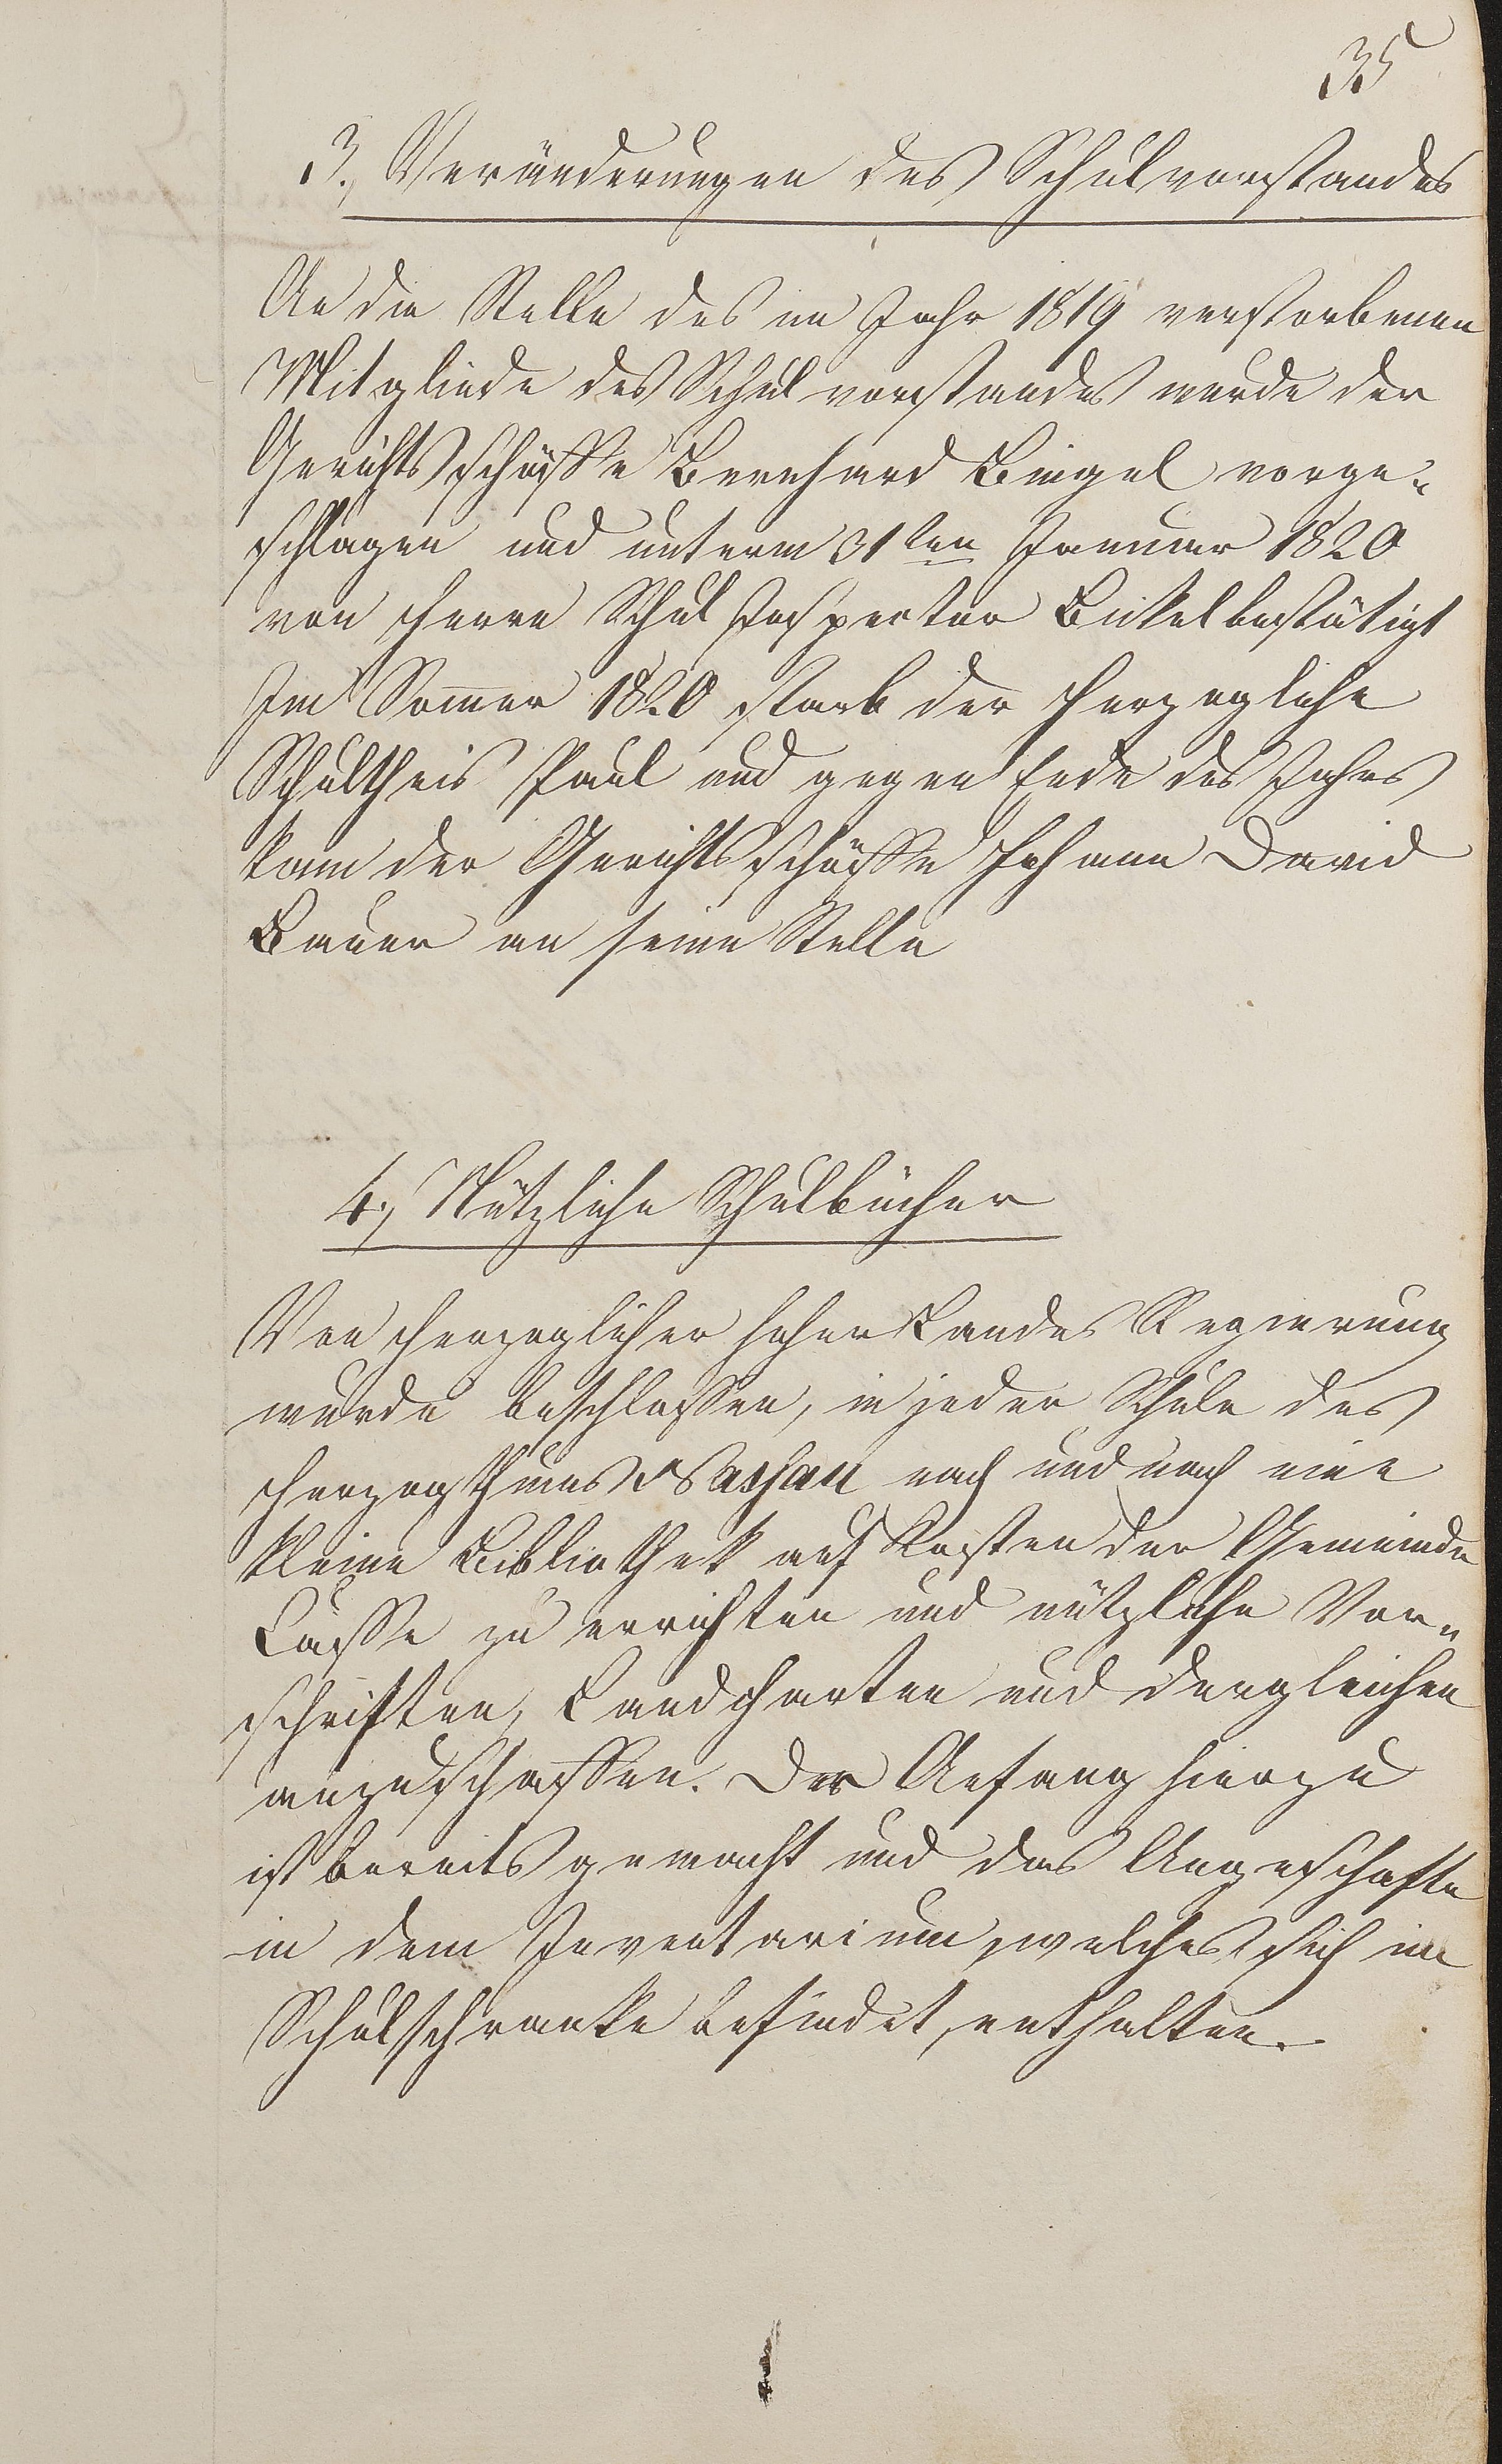 35
3., Veränderungen des Schulvorstandes
An die Stelle des im Jahr 1819 verstorbenen
Mitgliede des Schulvorstandes wurde der
Gerichtsschöffe Bernhard Bingel vorge„
schlagen und unterm 31ten Januar 1820
von Herrn Schul Inspector Bickel bestätigt
Im Som̅er 1820 starb der Herzogliche
Schultheis Paul und gegen Ende des Jahres
kam der Gerichtsschöffe Johann David
Bauer an seine Stelle
4., Nützliche Schulbücher
Von Herzoglicher hoher Landes Regierung
wurde beschlossen, in jeder Schule des
Herzogthums Nassau nach und nach eine
kleine Bibliothek auf Kosten der Gemeinde
Casse zu errichten und nützliche Vor„
schriften, Landcharten und dergleichen
anzuschaffen. Der Anfang hierzu
ist bereits gemacht und das Angeschafte
in dem Inventarium, welches sich im
Schulschranke befindet, enthalten.